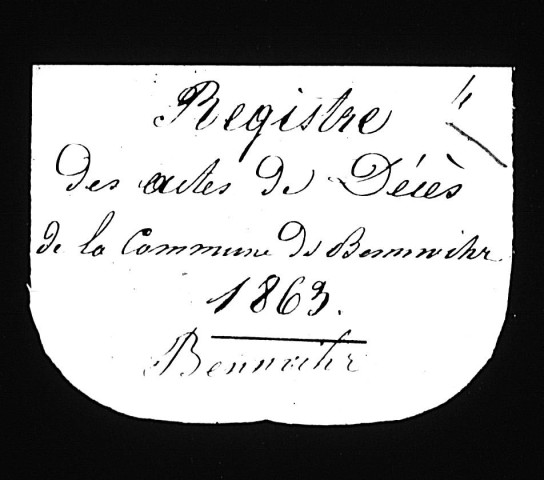 Registre
des actes de Décès
de la Commune de Bennwihr
1863.
Bennwihr